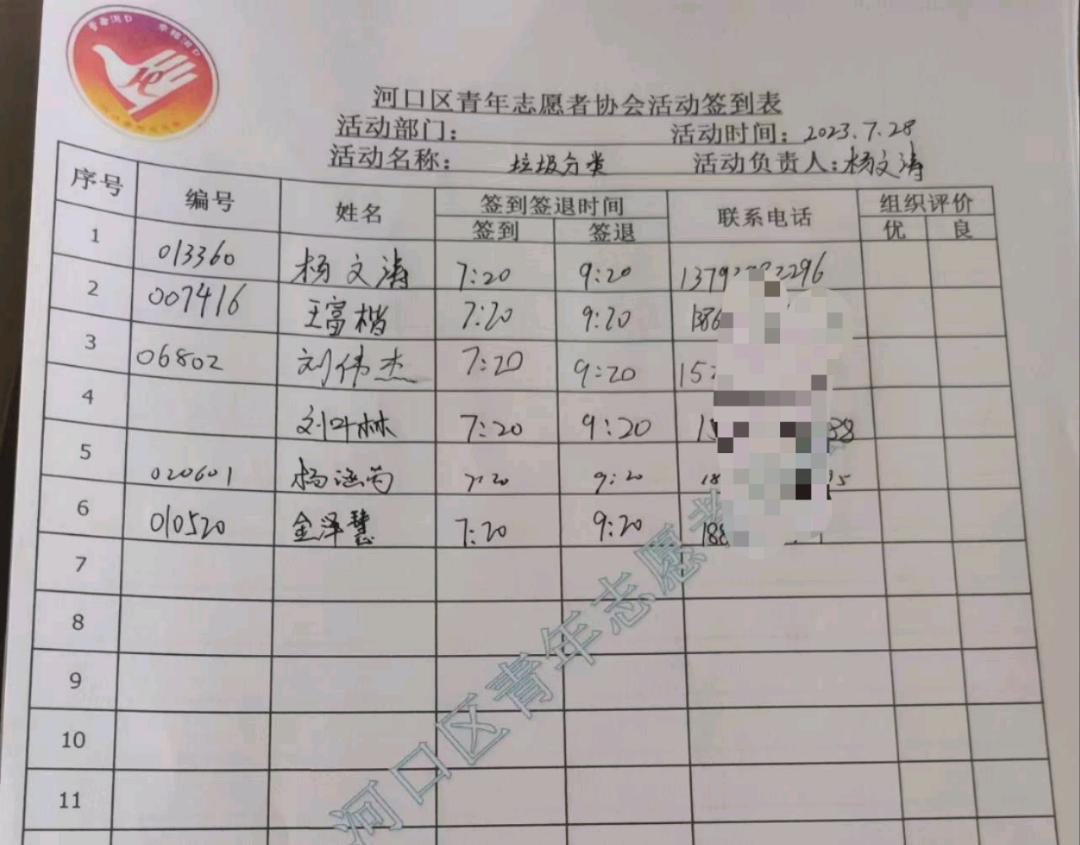 青春河口 幸福河口
河口区青年志愿者协会活动签到表
活动部门： 活动时间：2023.7.28
活动名称： 垃圾分类 活动负责人：杨文涛
序号 编号 姓名 签到签退时间 联系电话 组织评价
签到 签退 优 良
1 013360 杨文涛 7:20 9:20
2 007416 王富楷 7:20 9:20
3 06802 刘伟杰 7:20 9:20
4 刘叶林 7:20 9:20
5 020601 杨涵 7:20 9:20
6 010520 金泽慧 7:20 9:20
7
8
9
10
11
河口区青年志愿者